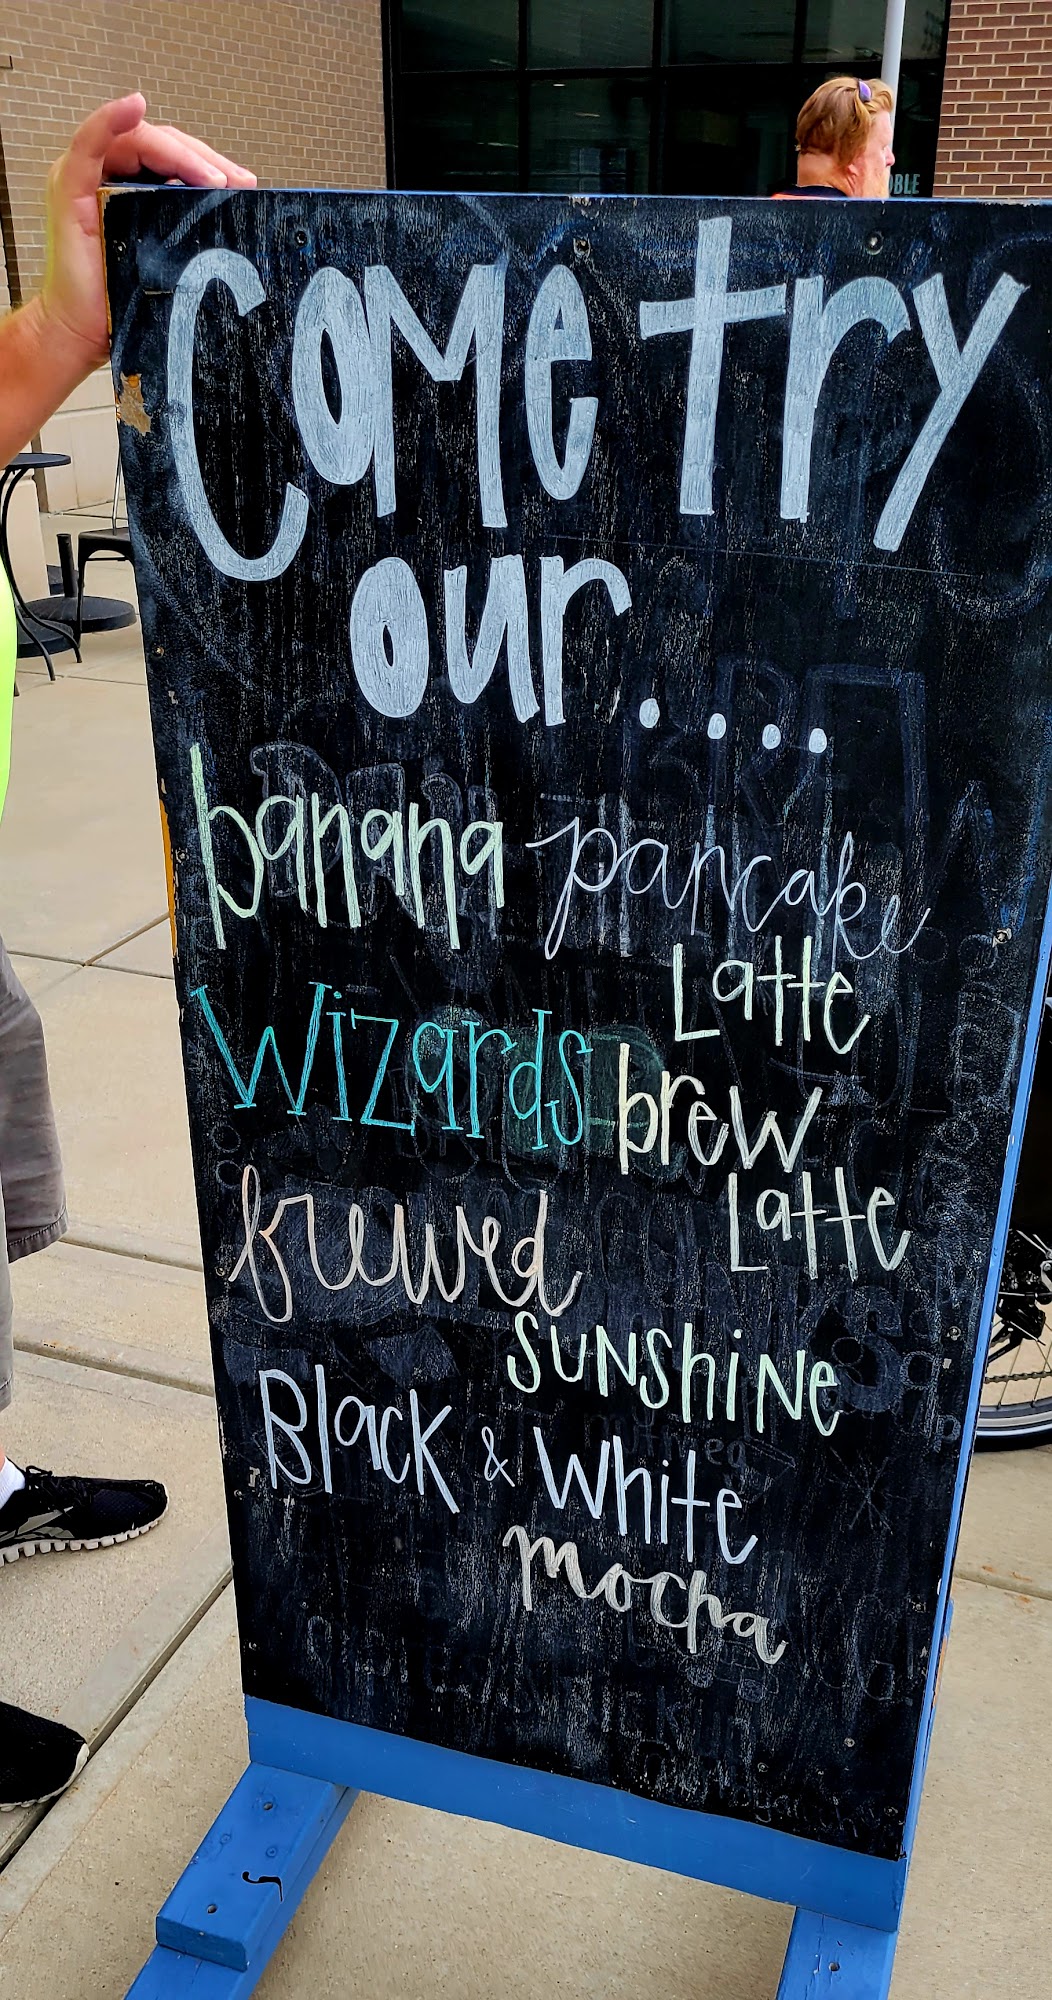 OBLE
Come try
our....
banana pancake
Latte
Wizards brew
Latte
brewed
sunshine
Black & White
mocha